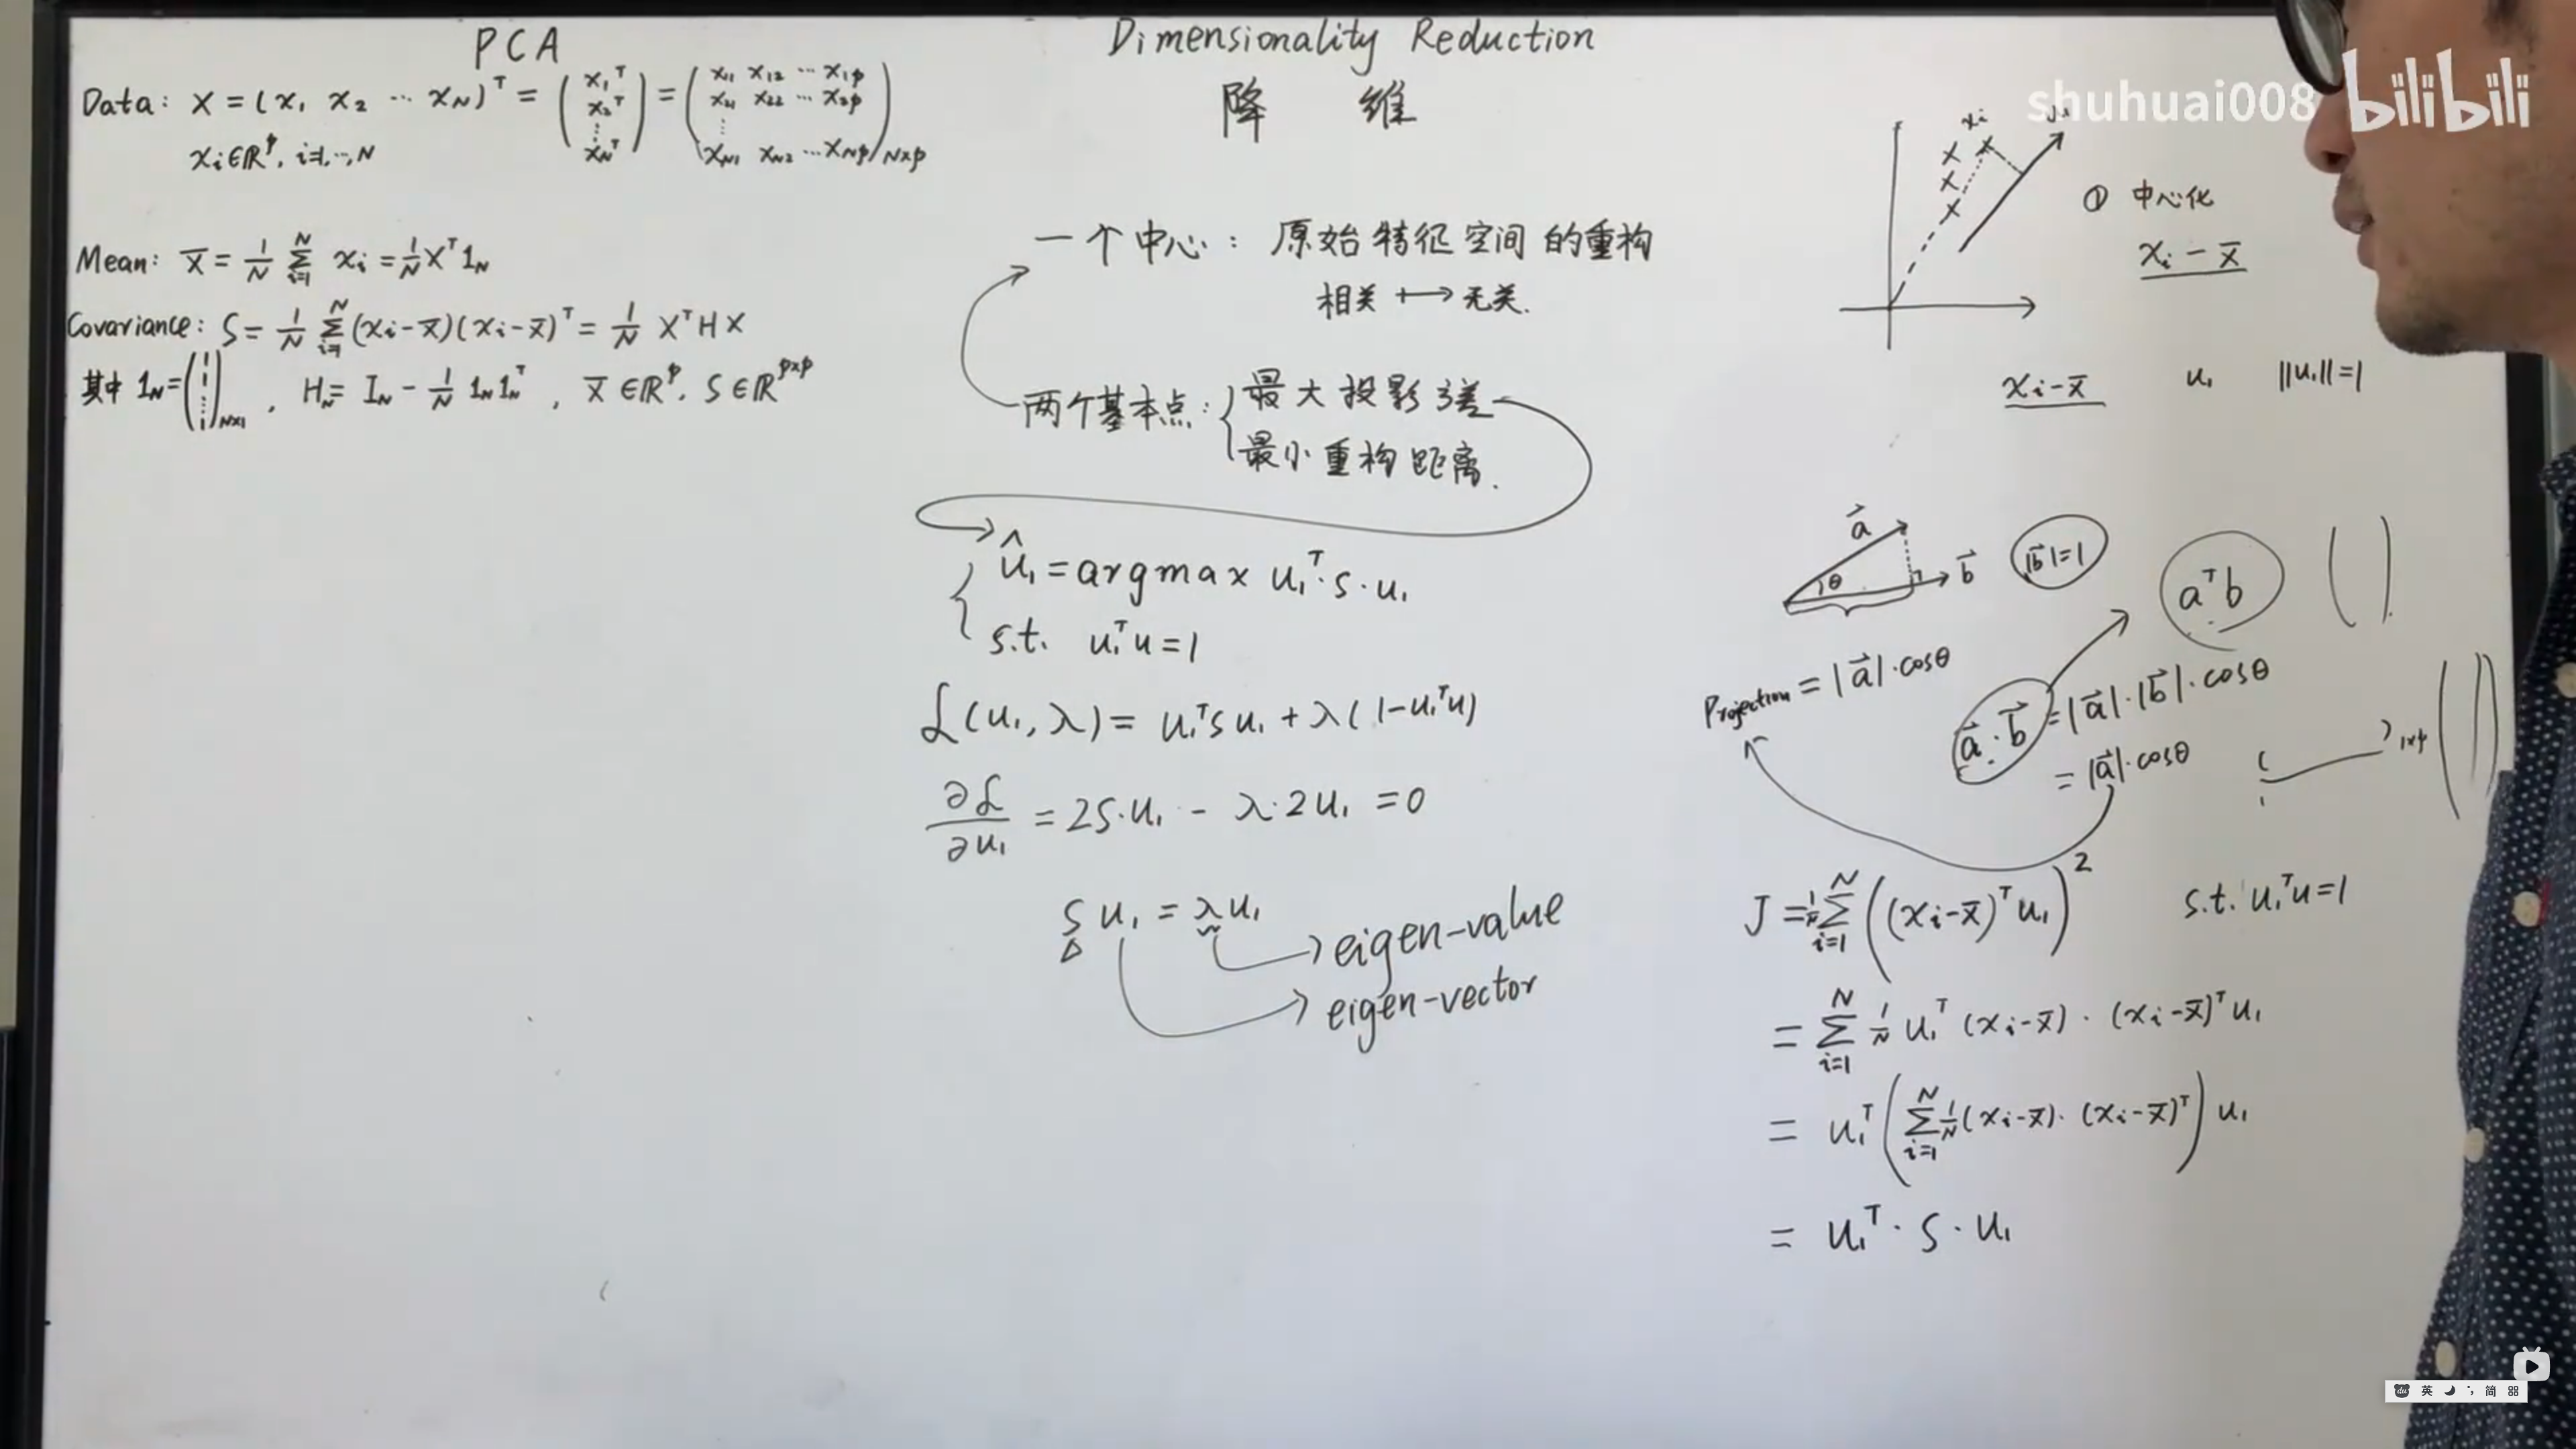 PCA
Data: X = (x₁ x₂ ⋯ x_N)ᵀ = (x₁ᵀ x₂ᵀ ⋮ x_Nᵀ) = (x₁₁ x₁₂ ⋯ x₁p
x₂₁ x₂₂ ⋯ x₂p
⋮
x_N1 x_N2 ⋯ x_Np)_N×p
xᵢ∈ℝᵖ, i=1,⋯,N
Mean: X̄ = 1/N ∑_{i=1}^N xᵢ = 1/N Xᵀ1_N
Covariance: S = 1/N ∑_{i=1}^N (xᵢ-x̄)(xᵢ-x̄)ᵀ = 1/N XᵀHX
其中 1_N = (1 1 ⋮ 1)_N×1, H_N = I_N - 1/N 1_N 1_Nᵀ, X̄∈ℝᵖ, S∈ℝᵖˣᵖ
Dimensionality Reduction
降 维
一个中心: 原始特征空间的重构
相关 ↦ 无关.
两个基本点: { 最大投影方差
最小重构距离.
û₁ = argmax u₁ᵀ·S·u₁
s.t. u₁ᵀu = 1
ℒ(u₁, λ) = u₁ᵀSu₁ + λ(1-u₁ᵀu)
∂ℒ/∂u₁ = 2S·u₁ - λ·2u₁ = 0
S u₁ = λu₁
→ eigen-value
→ eigen-vector
shuhuai008 bilibili
xᵢ u₁
① 中心化
xᵢ - x̄
xᵢ-x̄ u₁ ‖u₁‖=1
a⃗ θ b⃗ |b⃗|=1
aᵀb ( )
Projection = |a⃗|·cosθ
a⃗·b⃗ = |a⃗|·|b⃗|·cosθ
= |a⃗|·cosθ ( )₁ₓp ( )
J = 1/N ∑_{i=1}^N ((xᵢ-x̄)ᵀu₁)² s.t. u₁ᵀu=1
= ∑_{i=1}^N 1/N u₁ᵀ(xᵢ-x̄)·(xᵢ-x̄)ᵀu₁
= u₁ᵀ(∑_{i=1}^N 1/N(xᵢ-x̄)·(xᵢ-x̄)ᵀ)u₁
= u₁ᵀ·S·u₁
英 简